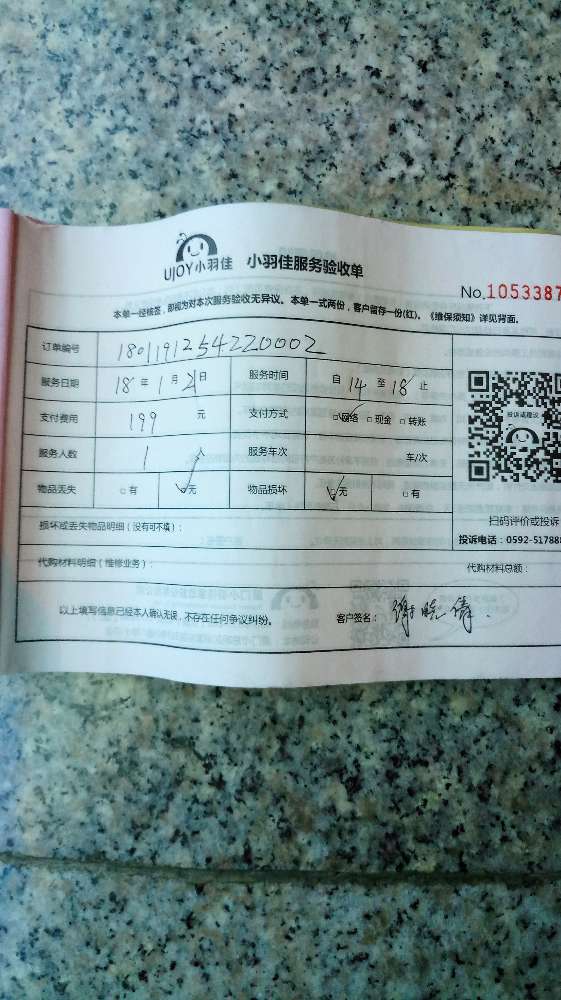 UJOY小羽佳 小羽佳服务验收单
No.1053387
本单一经核签，即视为对本次服务验收无异议。本单一式两份，客户留存一份(红)。《维保须知》详见背面。
订单编号 1801191254220002
服务日期 18年1月21日 服务时间 自14至18止
支付费用 199元 支付方式 ☑网络 □现金 □转账
服务人数 1人 服务车次 车/次
物品丢失 □有 ☑无 物品损坏 ☑无 □有
投诉或建议
扫码评价或投诉
损坏或丢失物品明细（没有可不填）：
投诉电话：0592-517888
代购材料明细（维修业务）： 代购材料总额：
以上填写信息已经本人确认无误，不存在任何争议纠纷。 客户签名：谢晓